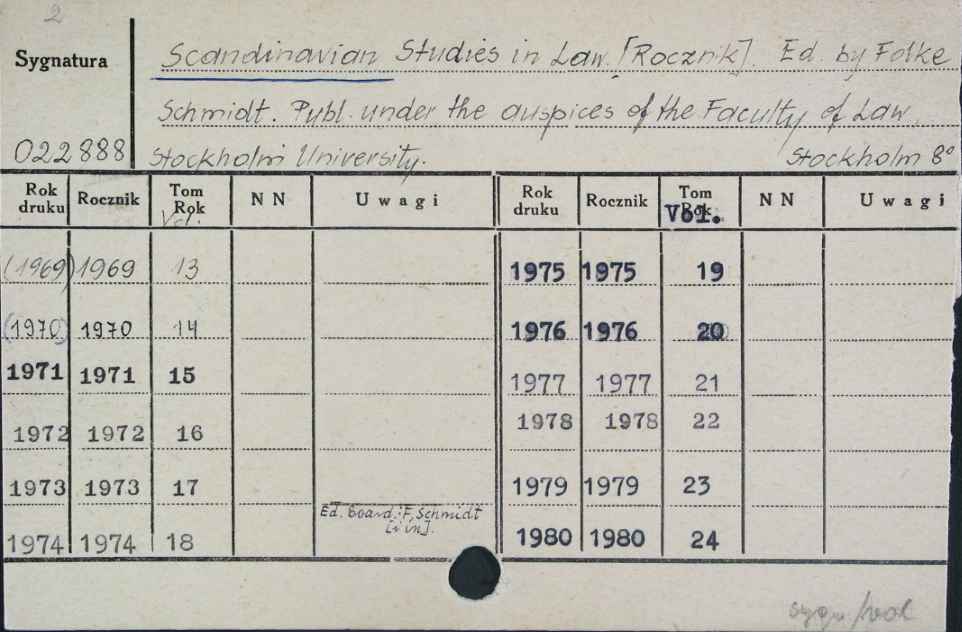 2
Sygnatura
Scandinavian Studies in Law. [Rocznik]. Ed. by Folke
Schmidt. Publ. under the auspices of the Faculty of Law,
022888 Stockholm University. Stockholm 8°
Rok druku Rocznik Tom Rok Vol. N N Uwagi Rok druku Rocznik Tom Rok Vol. N N Uwagi
(1969) 1969 13 1975 1975 19
(1970) 1970 14 1976 1976 20
1971 1971 15 1977 1977 21
1972 1972 16 1978 1978 22
1973 1973 17 1979 1979 23
Ed. board: F. Schmidt
[i in].
1974 1974 18 1980 1980 24
sygn.